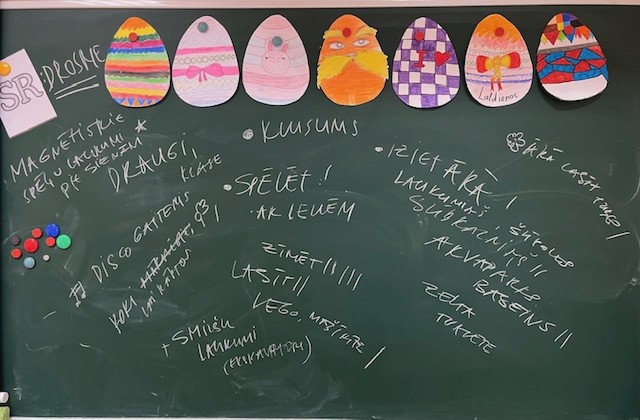 SR
:DROSME
Lieldienas
MAGNĒTISKIE
SPĒĻU LAUKUMI
PIE SIENĀM
DRAUGI,
KLASE
# DISCO GAITENIS
KOKI
• KLUSUMS
• SPĒLĒT!
AR LELLĒM
ZĪMĒT!!!!!
LASĪT!!
LEGO, MAŠĪNĪTE /
+ SMILŠU
LAUKUMI
(EKSKAVATORI)
• IZIET ĀRĀ
LAUKUMIŅĀ!
ŠŪPOLES
AKVAPARKS
BASEINS II
ZELTA
TUALETE
ĀRĀ LASĪT